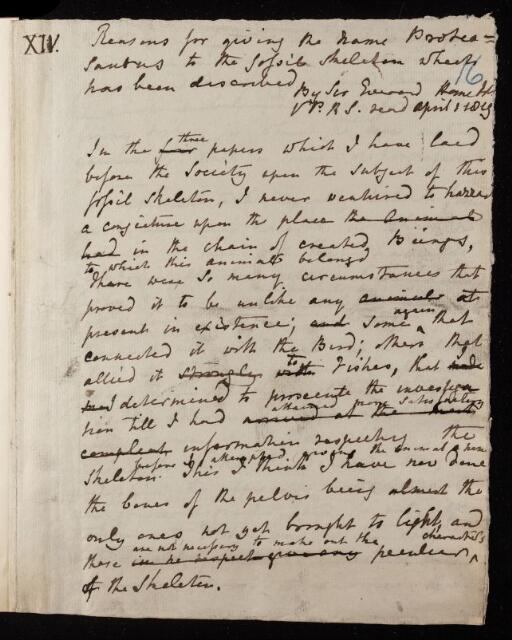 XIV.
Reasons for giving the name Proteo=
saurus to the fossil skeleton which
has been described
16
By Sir Everard Home Bt.
V.P.R.S. read April 1 1819
In the four three papers which I have laid
before the Society upon the subject of this
fossil skeleton, I never ventured to hazard
a conjecture upon the place the animal
had in the chain of created Beings,
to which this animal belongd
There were so many circumstances that
proved it to be unlike any animal at
present in existence; and some again that
connected it with the Bird; others that
allied it strongly with to Fishes, that made
me I determined to prosecute the investiga
tion till I had arrived at the most attained more satisfactory
compleat information respecting the
skeleton before I attempted giving the animal a name
This I think I have now done
the bones of the pelvis being almost the
only ones not yet brought to light, and
these are not necessary to make out the characters
peculiar
of the Skeleton.